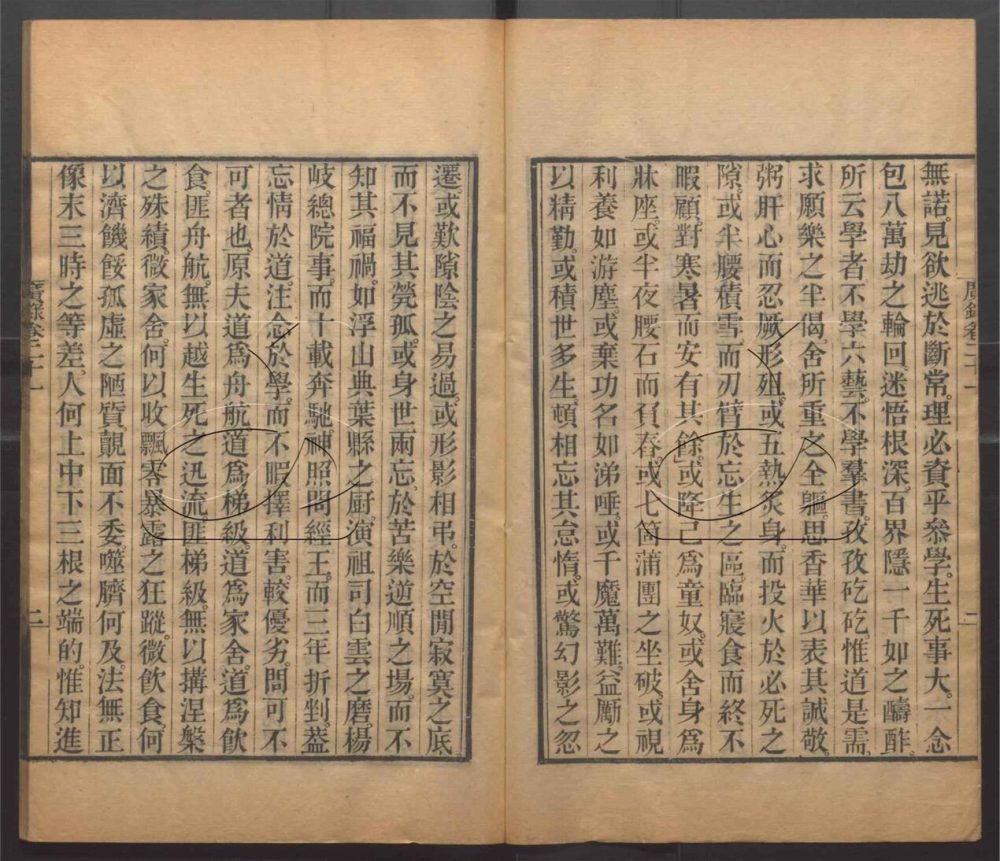 無諾。見欲逃於斷常。理必資乎叅學。生死事大。一念
包八萬劫之輪回。迷悟根深。百界隱一千如之疇酢。
所云學者。不學六藝。不學羣書。孜孜矻矻。惟道是需。
求願樂之半偈。舍所重之全軀。思香華以表其誠敬。
粥肝心而忍厥形殂。或五熱炙身。而投火於必死之
隙。或半腰積雪。而刃臂於忘生之區。臨寢食而終不
暇顧。對寒暑而安有其餘。或降己爲童奴。或舍身爲
牀座。或半夜腰石而負舂。或七箇蒲團之坐破。或視
利養如游塵。或棄功名如涕唾。或千魔萬難。益勵之
以精勤。或積世多生。頓相忘其怠惰。或驚幻影之忽
遷。或歎隙陰之易過。或形影相弔。於空閒寂寞之底。
而不見其煢孤。或身世兩忘。於苦樂逆順之場。而不
知其福禍。如浮山典葉縣之厨。演祖司白雲之磨。楊
岐總院事。而十載奔馳。神照問經王。而三年折剉。葢
忘情於道。注念於學。而不暇擇利害。較優劣。問可不
可者也。原夫道爲舟航。道爲梯級。道爲家舍。道爲飲
食。匪舟航。無以越生死之迅流。匪梯級。無以搆涅槃
之殊績。微家舍。何以收飄零暴露之狂蹤。微飲食。何
以濟饑餒孤虛之陋質。覿面不委。噬臍何及。法無正
像末三時之等差。人何上中下三根之端的。惟知進
廣錄卷二十一
二